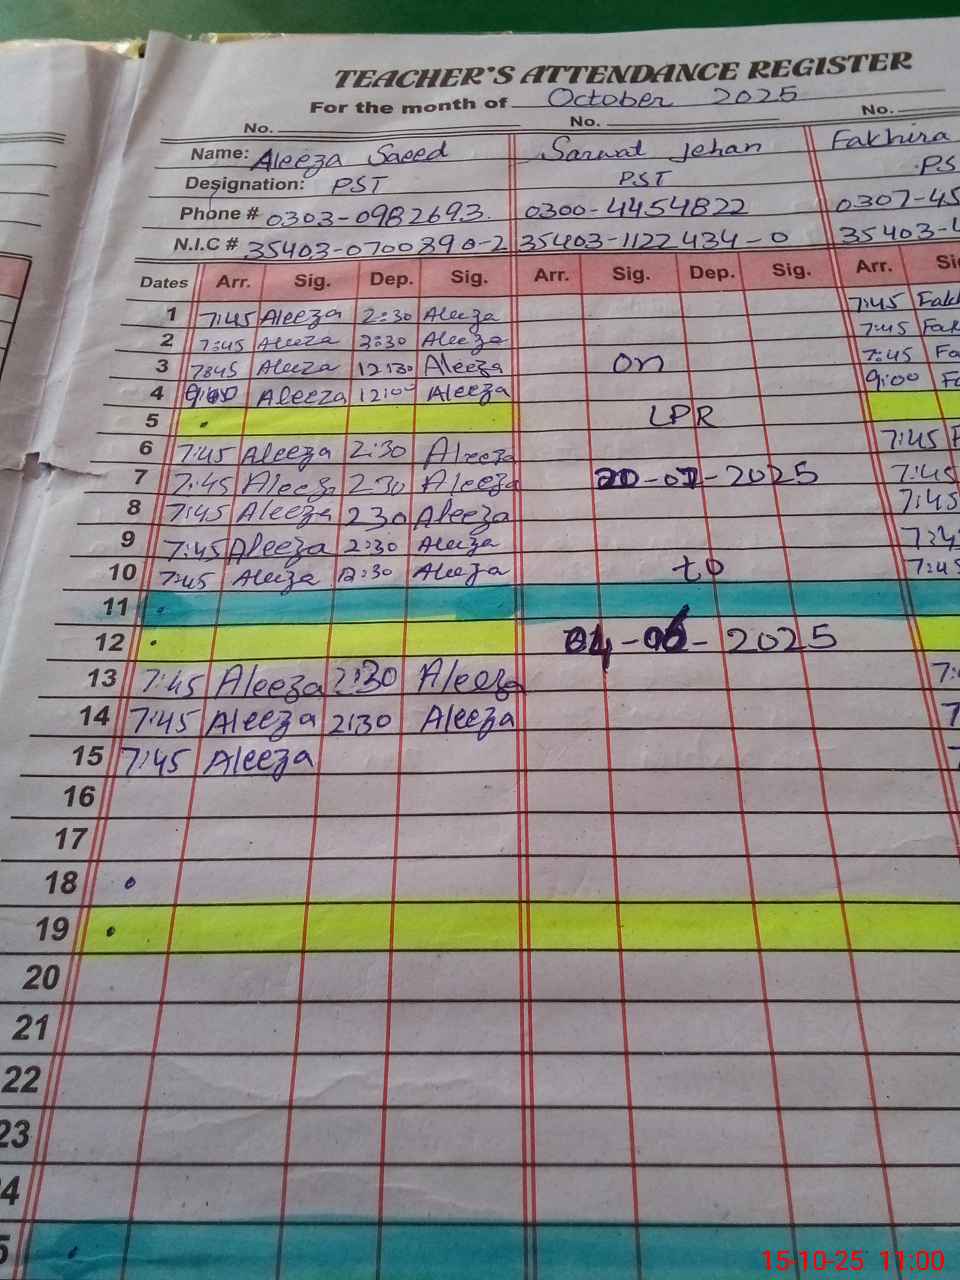 TEACHER'S ATTENDANCE REGISTER
For the month of October 2025
No. No. No.
Name: Aleeza Saeed Sarwat Jehan Fakhira
Designation: PST PST PS
Phone # 0303-0982693 0300-4454822 0307-45
N.I.C # 35403-0700890-2 35403-1122434-0 35403-4
Dates Arr. Sig. Dep. Sig. Arr. Sig. Dep. Sig. Arr. Si
1 7:45 Aleeza 2:30 Aleeza 7:45 Fak
2 7:45 Aleeza 2:30 Aleeza 7:45 Fak
3 7:45 Aleeza 12:30 Aleeza on 7:45 Fa
4 9:00 Aleeza 12:00 Aleeza 9:00 Fa
5 LPR
6 7:45 Aleeza 2:30 Aleeza 7:45 F
7 7:45 Aleeza 2:30 Aleeza 20-07-2025 7:45
8 7:45 Aleeza 230 Aleeza 7:45
9 7:45 Aleeza 2:30 Aleeza 7:4
10 7:45 Aleeza 12:30 Aleeza to 7:45
11
12 04-06-2025
13 7:45 Aleeza 2:30 Aleeza 7:
14 7:45 Aleeza 2:30 Aleeza 7
15 7:45 Aleeza 7
16
17
18
19
20
21
22
23
4
5
15-10-25 11:00